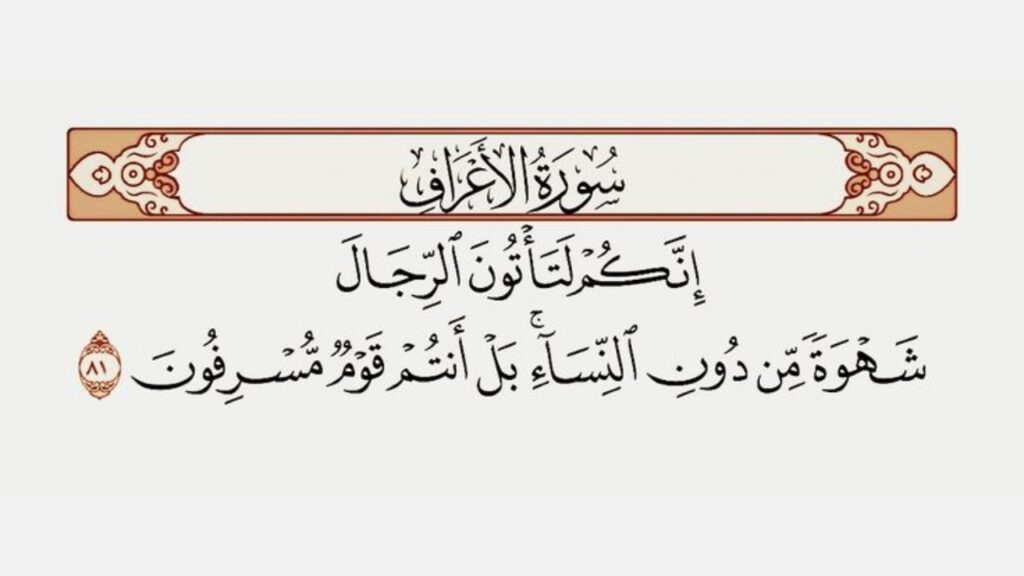 سُورَةُ الأَعْرَافِ
إِنَّكُمْ لَتَأْتُونَ ٱلرِّجَالَ
شَهْوَةً مِّن دُونِ ٱلنِّسَآءِۚ بَلْ أَنتُمْ قَوْمٌ مُّسْرِفُونَ ٨١